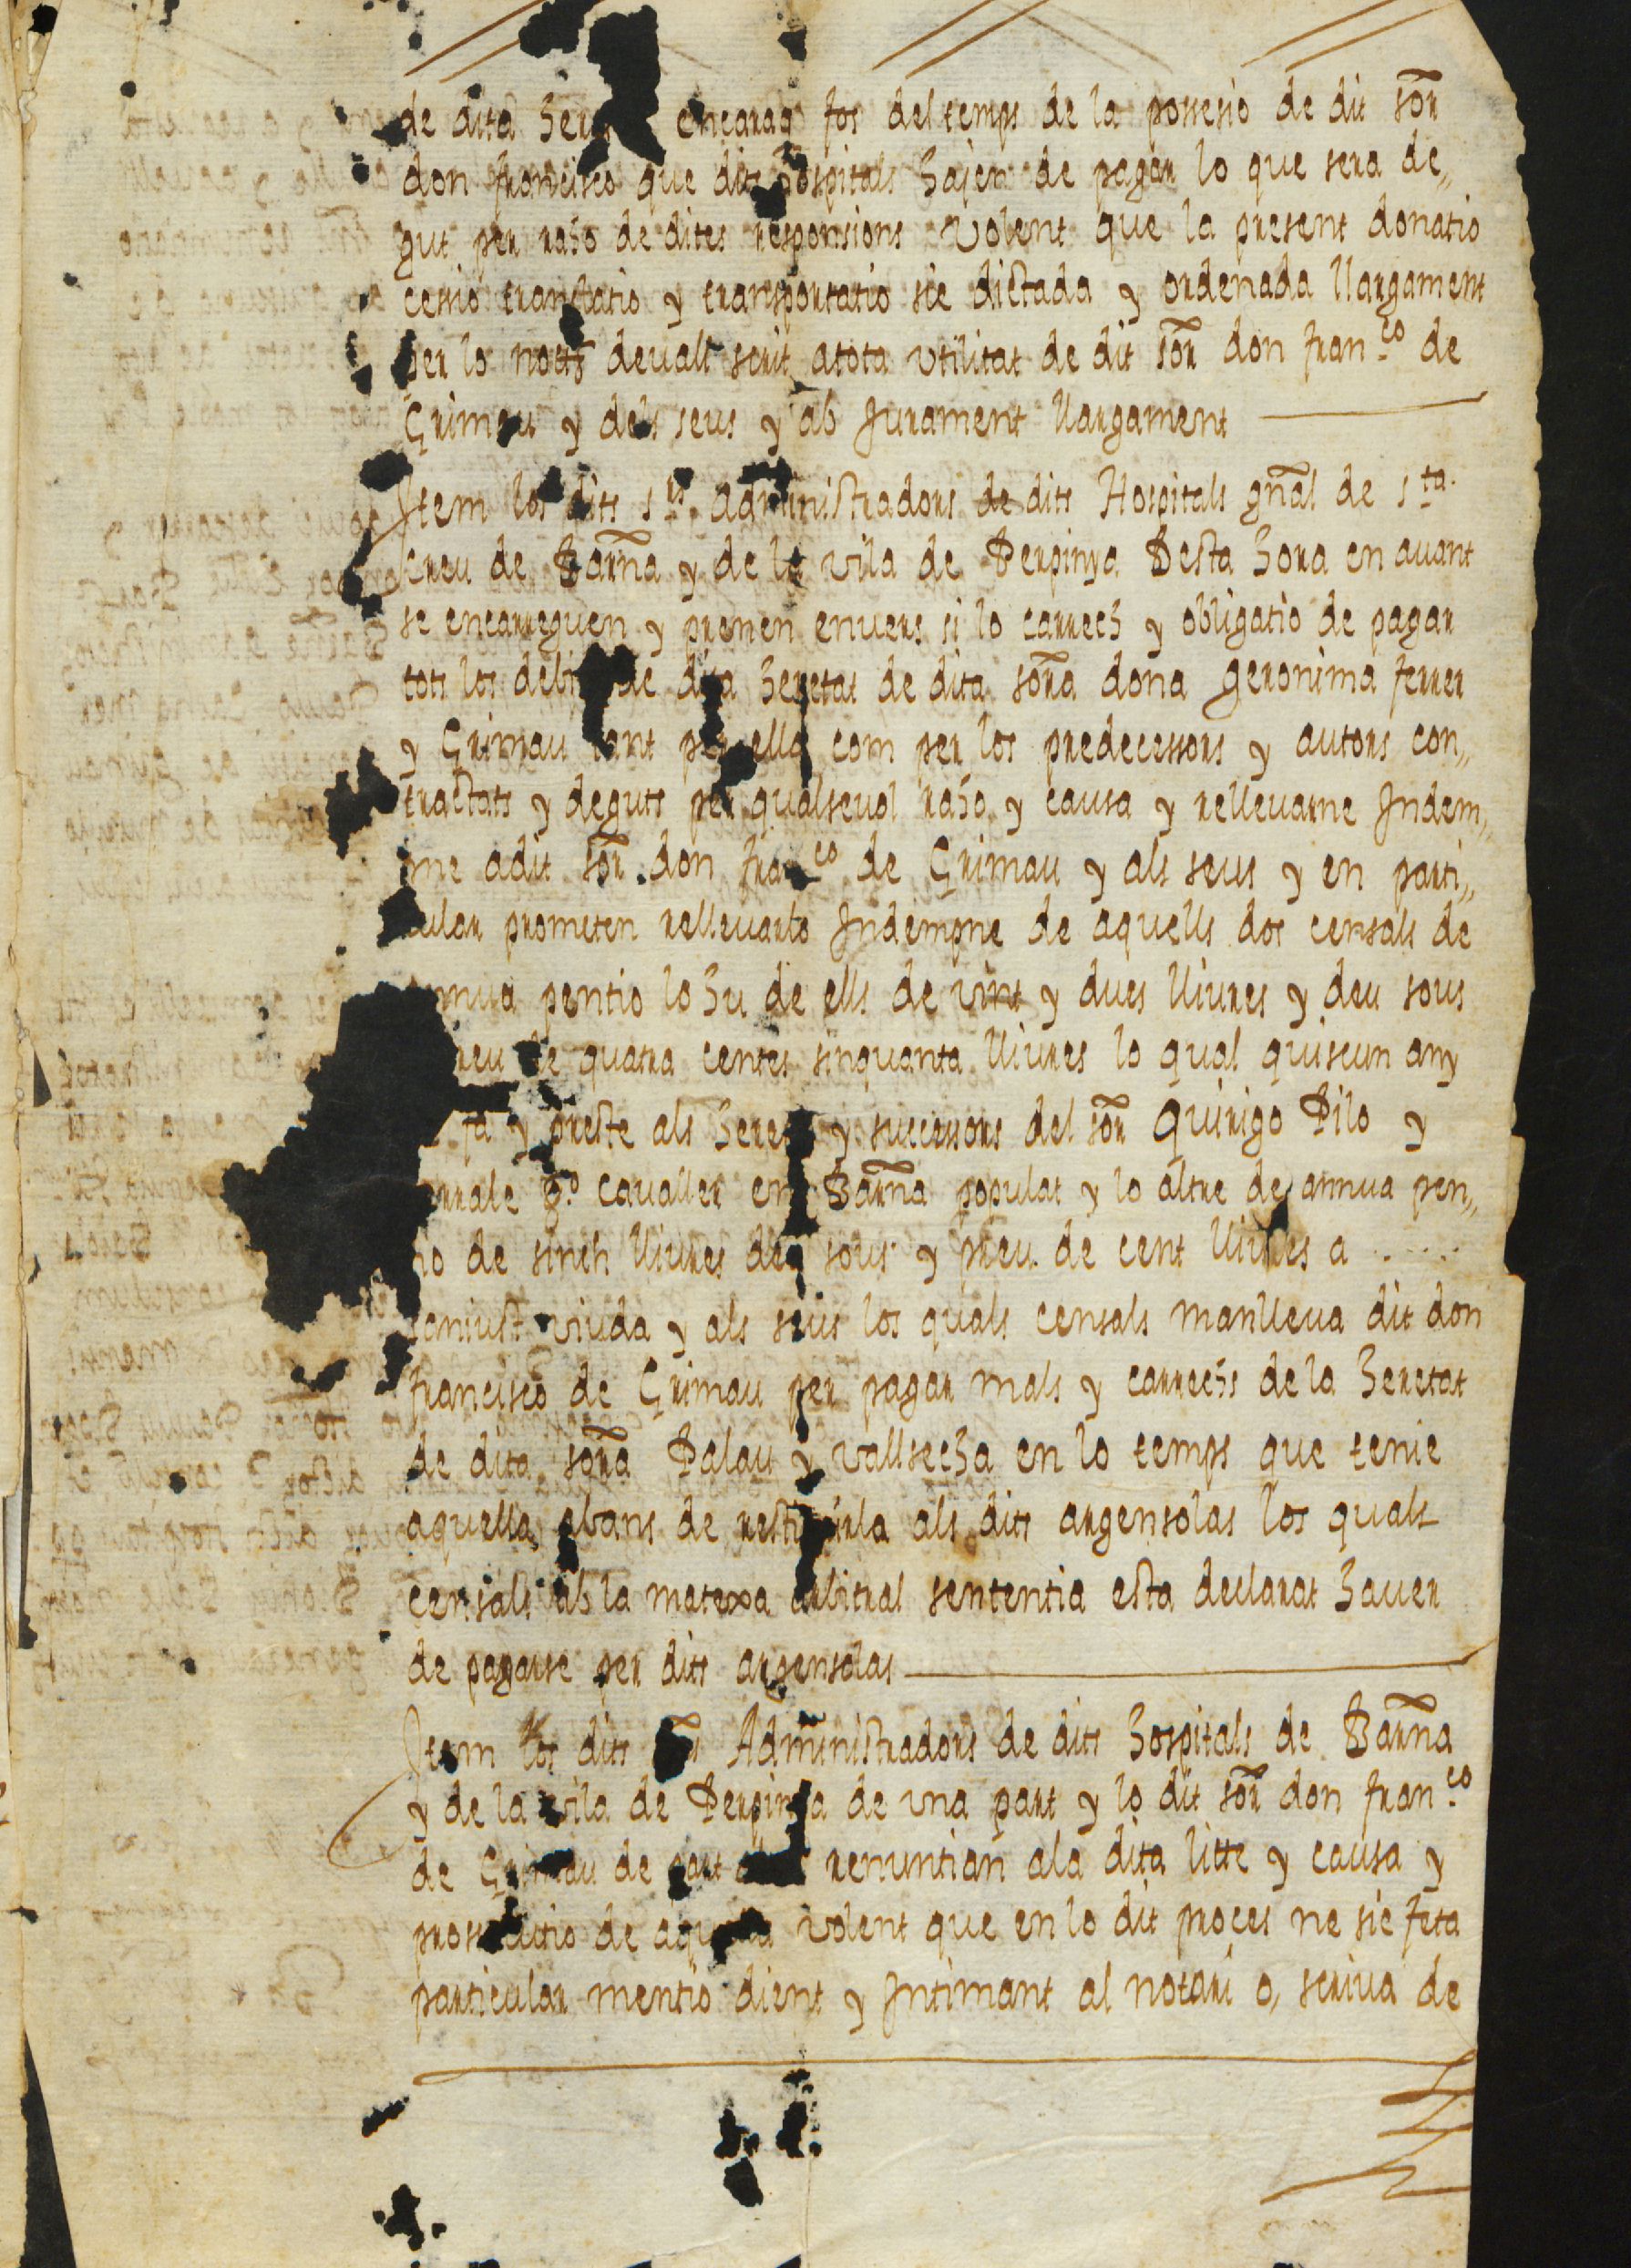 de dita encaraq fos del temps de la possesio de dit sor
don francisco que dits hospitals hajen de pagar lo que sera de„
gut per raho de dites responsions volent que la present donatio
cessio translatio y transportatio sie dictada y ordenada llargament
per lo devall scrit atota vtilitat de dit sor don fran.co de
Grimau y dels seus y ab Jurament llargament
Item los dits s.rs administradors de dits Hospitals gñal de s.ta
creu de Barña y de la vila de Perpinya Desta hora en auant
se encarreguen y prenen envers si lo carrech y obligatio de pagar
tots los debits de dita heretat de dita sora dona geronima ferrer
y Grimau tant per ella com per los predecessors y autors con„
tractats y deguts per qualsevol raho y causa y rellevarne Indem„
ne adit sor don fran.co de Grimau y als seus y en parti„
cular prometen rellevarlo Indempne de aquells dos censals de
annua pentio lo hu de ells de vint y dues lliures y deu sous
preu de quatra centes sinquanta lliures lo qual quiscun any
fa y preste als hereus y successors del sor Quirigo Pilo y
cavaller en Barña populat y lo altre de annua pen„
tio de sinch lliures deu sous y preu de cent lliures a . . . .
viuda y als seus los quals censals manlleva dit don
francisco de Grimau per pagar mals y carrechs de la heretat
de dita sora Palau y vallsecha en lo temps que tenie
aquella abans de restituirla als dits argensolas los quals
censals ab la matexa arbitral sententia esta declarat haver
de pagarse per dits argensolas
Item los dits Administradors de dits hospitals de Barña
y de la vila de Perpinya de vna part y lo dit sor don fran.co
de Grimau de part altra renuntian ala dita litte y causa y
prossecutio de aquella volent que en lo dit proces ne sie feta
particular mentio dient y Intimant al notari o, scriva de